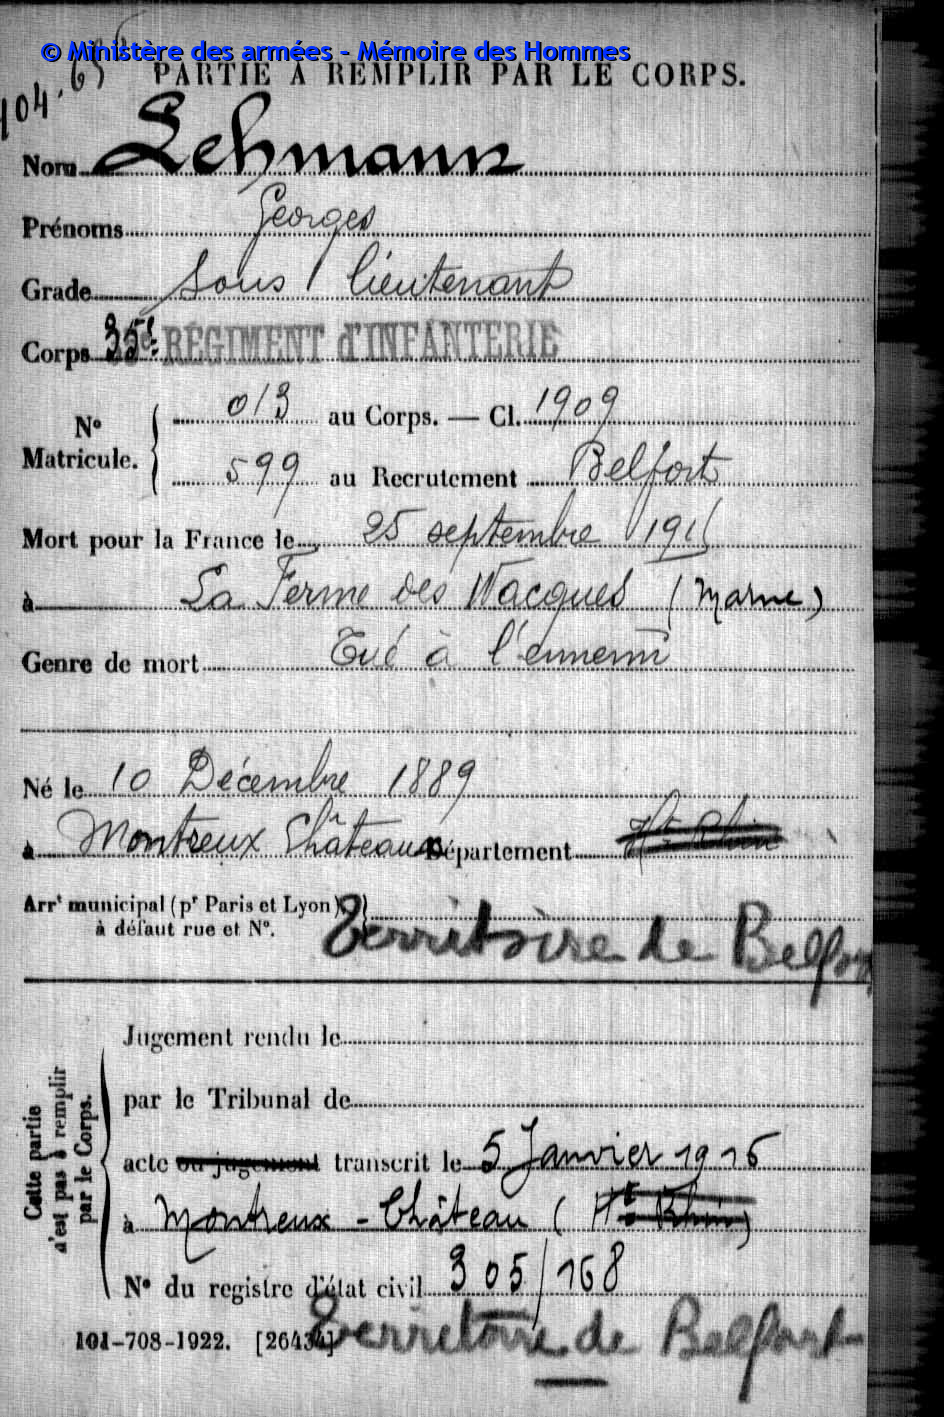 © Ministère des armées - Mémoire des Hommes
PARTIE À REMPLIR PAR LE CORPS.
Nom Lehmann
Prénoms Georges
Grade Sous lieutenant
Corps 35e RÉGIMENT d'INFANTERIE
N° Matricule. 013 au Corps. — Cl. 1909
599 au Recrutement Belfort
Mort pour la France le 25 septembre 1915
à La Ferme des Wacques (Marne)
Genre de mort Tué à l'ennemi
Né le 10 Décembre 1889
à Montreux Château Département Ht Rhin
Arrt municipal (pr Paris et Lyon)
à défaut rue et N°.
Territoire de Belfort
Cette partie n'est pas à remplir par le Corps.
Jugement rendu le
par le Tribunal de
acte ou jugement transcrit le 5 Janvier 1916
à Montreux - Château (Ht Rhin)
N° du registre d'état civil 305/168
101-708-1922. [26434]
Territoire de Belfort